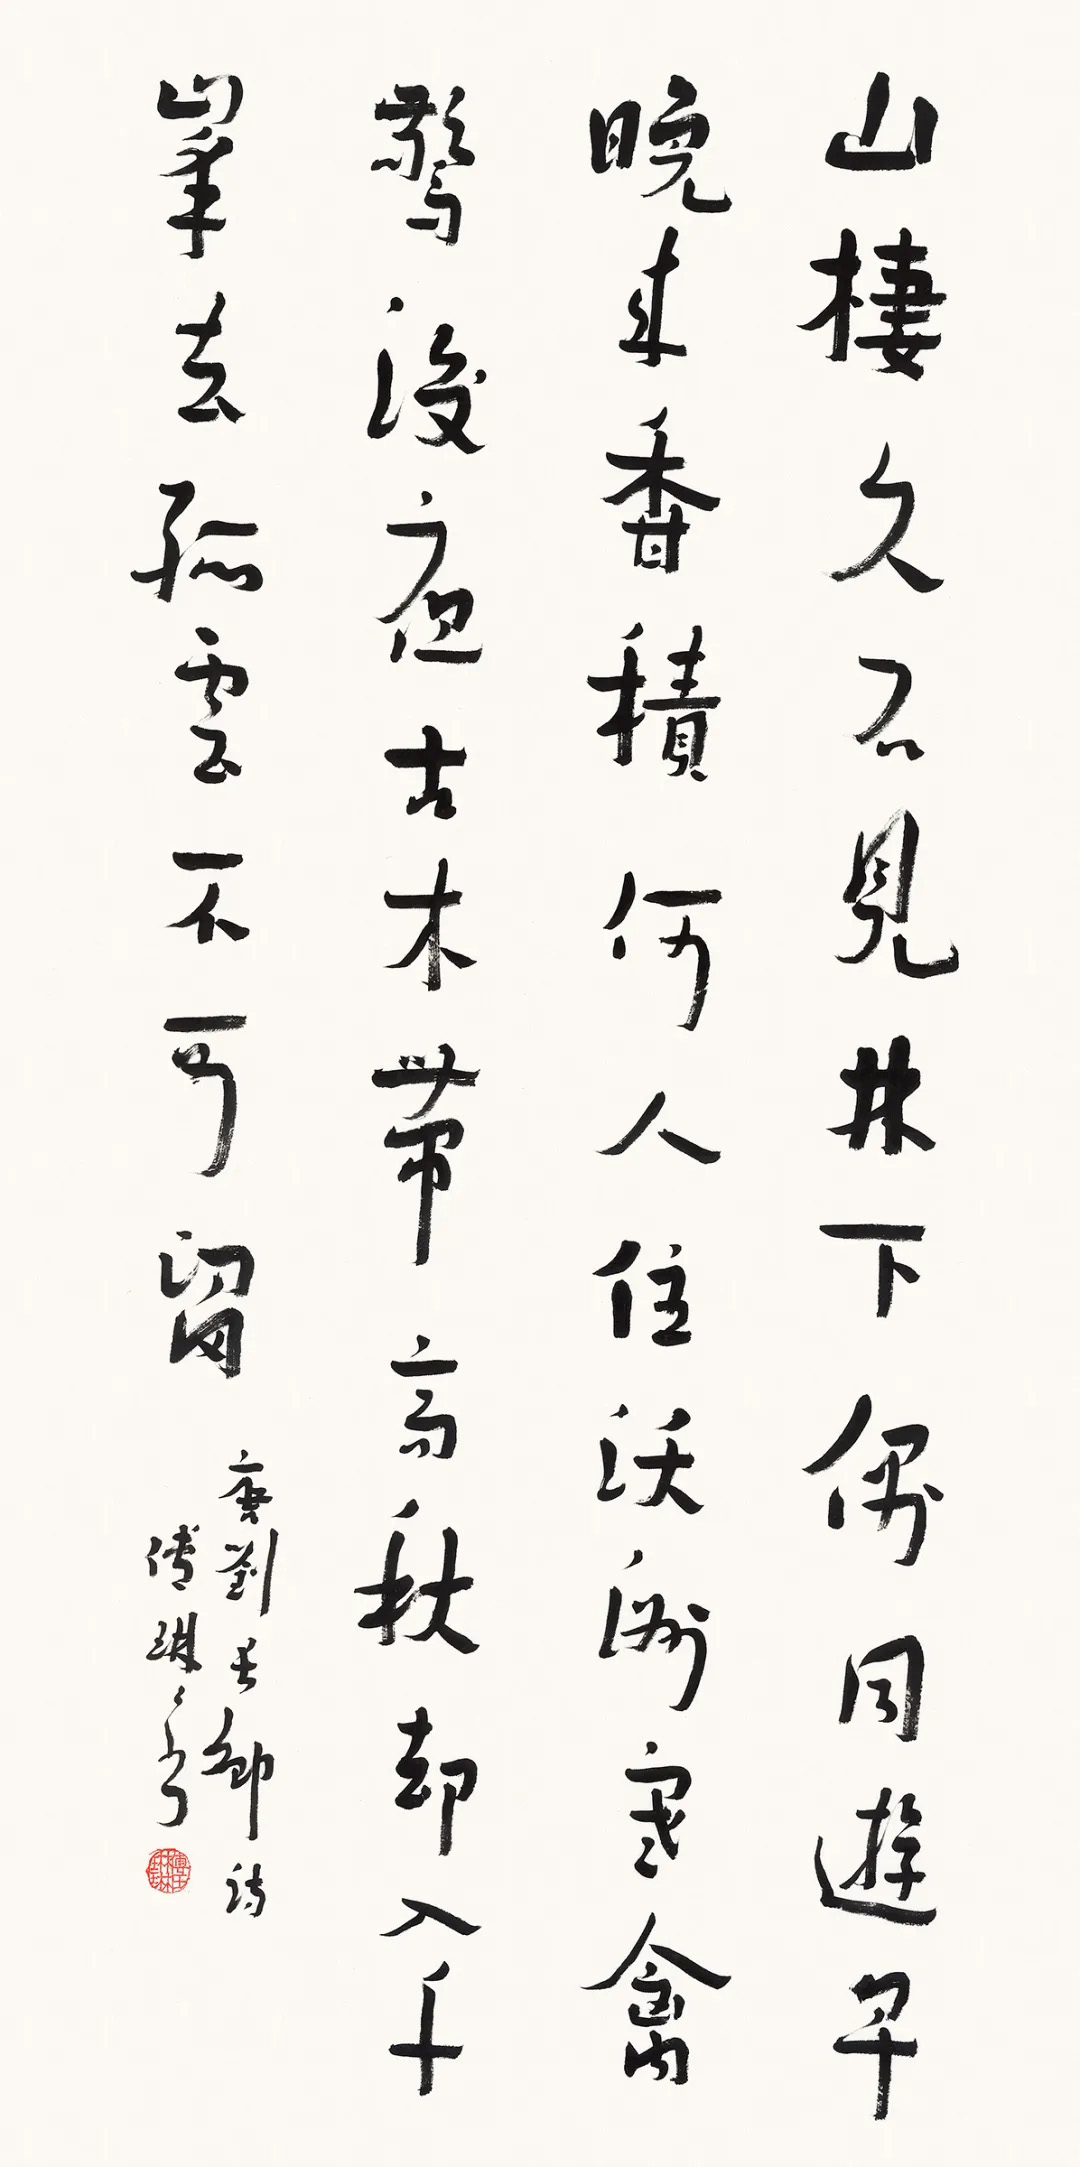 山棲久不見林下偶同遊早
晚來香積何人住沃洲寒禽
驚後夜古木帶高秋却入千
峯去孤雲不可留
唐劉長卿詩
傅璇